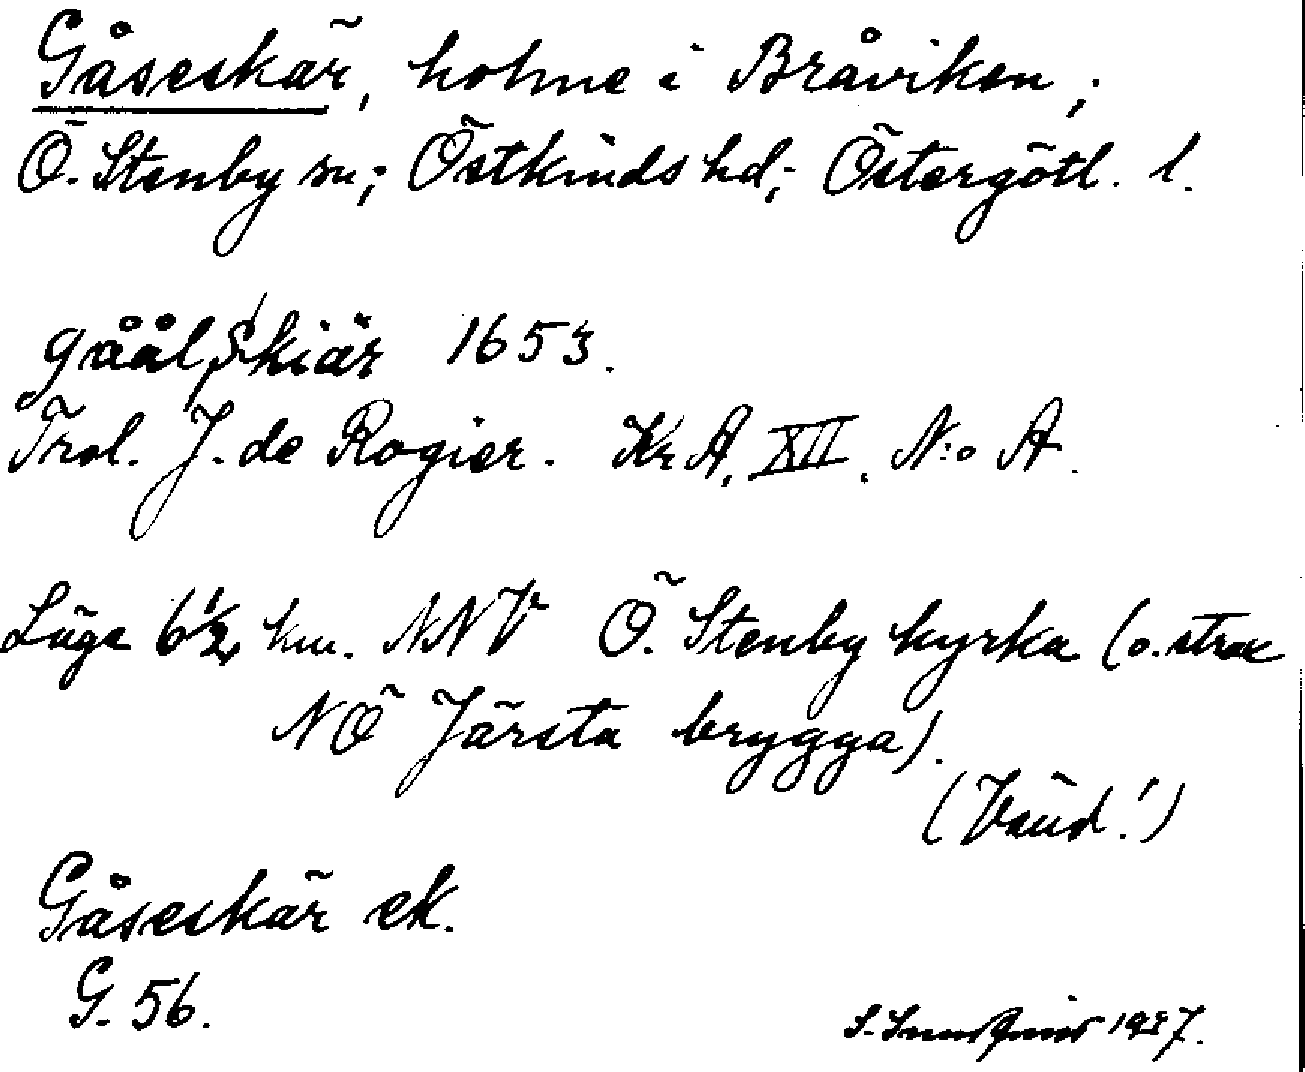 Gåseskär, holme i Bråviken;
Ö. Stenby sn; Östkinds hd; Östergötl. l.
gåålſkiär 1653.
Trol. J. de Rogier. Kr A, XII. N:o A.
Läge 6½ km. NNV Ö. Stenby kyrka (o. strax
NÖ Järsta brygga).
(Vänd!)
Gåseskär ek.
G. 56.
1937.